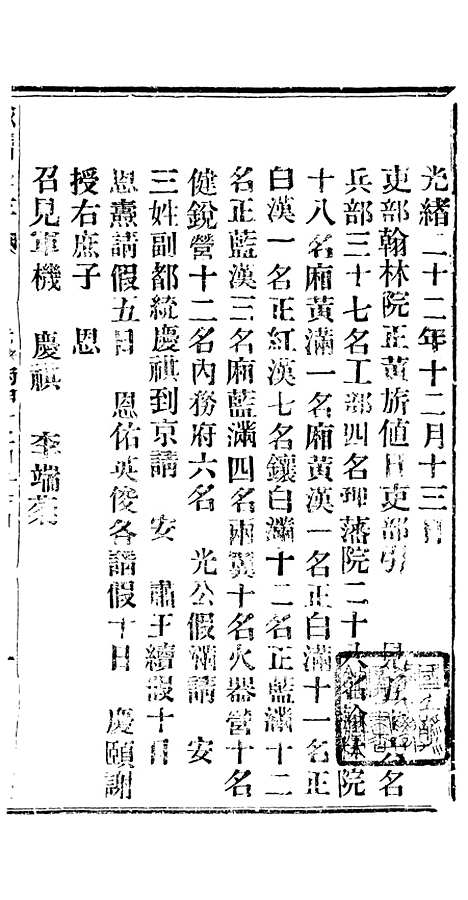 光緒二十二年十二月十三日
吏部翰林院正黃旂值日吏部引　見 名
兵部三十七名工部四名理藩院二十 名翰林院
十八名廂黃滿一名廂黃漢一名正白滿十一名正
白漢一名正紅漢七名鑲白滿十二名正藍滿十二
名正藍漢三名廂藍滿四名兩翼十名火器營十名
健銳營十二名內務府六名　光公假滿請　安
三姓副都統慶祺到京請　安　肅王續假十日
恩燾請假五日　恩佑英俊各請假十日　慶頤謝
授右庶子　恩
召見軍機　慶祺　李端棻